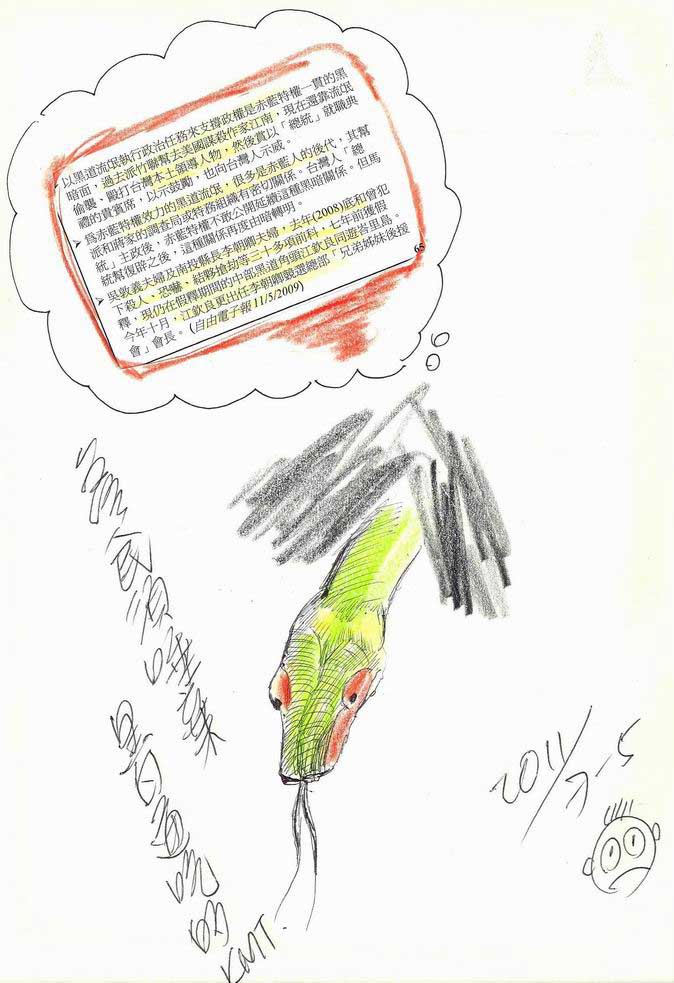 以黑道流氓執行政治任務來支撐政權是赤藍特權一貫的黑
暗面，過去派竹聯幫去美國謀殺作家江南，現在還靠流氓
偷襲、毆打台灣本土領導人物，然後賞以「總統」就職典
禮的貴賓席，以示鼓勵，也向台灣人示威。
➢ 為赤藍特權效力的黑道流氓，很多是赤藍人的後代，其幫
派和蔣家的調查局或特務組織有密切關係。台灣人「總
統」主政後，赤藍特權不敢公開延續這種黑暗關係。但馬
統幫復辟之後，這種關係再度由暗轉明。
➢ 吳敦義夫婦及南投縣長李朝卿夫婦，去年(2008)底和曾犯
下殺人、恐嚇、結夥搶劫等三十多項前科，七年前獲假
釋，現仍在假釋期間的中部黑道角頭江欽良同遊峇里島。
今年十月，江欽良更出任李朝卿競選總部「兄弟姊妹後援
會」會長。(自由電子報 11/5/2009)
65
2011/7-5
KMT.